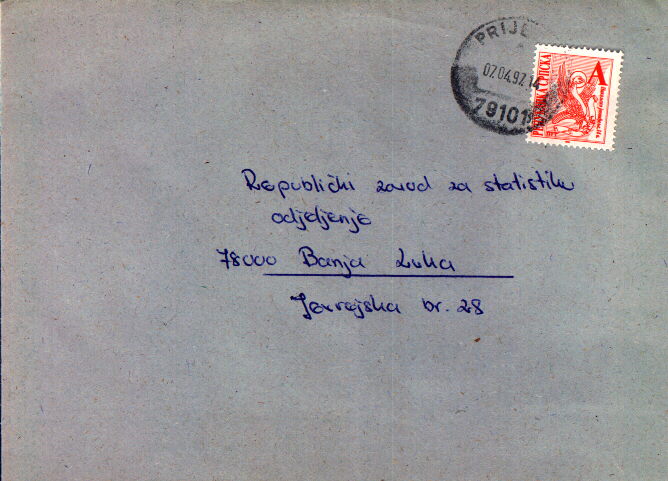 PRIJE
07.04.97.14
79101
A
Republički zavod za statistiku
odjeljenje
78000 Banja Luka
Jevrejska br. 28